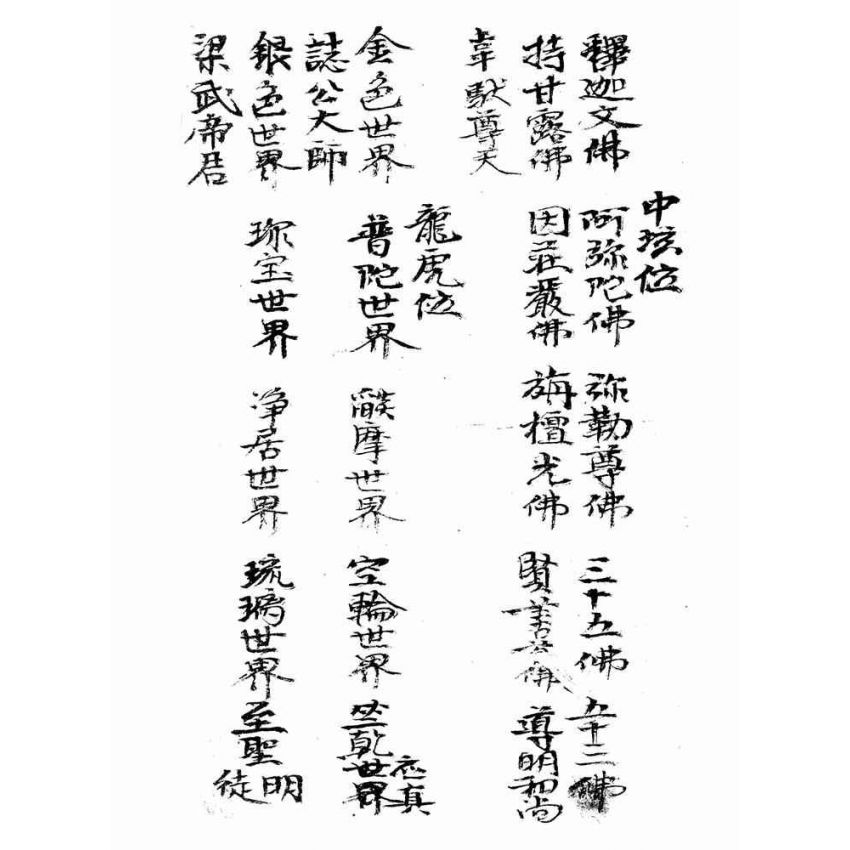 中坛位
釋迦文佛 阿弥陀佛 弥勒尊佛 三十五佛 五十三佛
持甘露佛 因莊嚴佛 旃檀光佛 賢善佛 導明和尚
韋馱尊天
龍虎位
金色世界 普陀世界 燄摩世界 空輪世界 竺乾世界 应真
誌公大師
銀色世界 珎宝世界 净居世界 琉璃世界 至聖明徒
梁武帝君